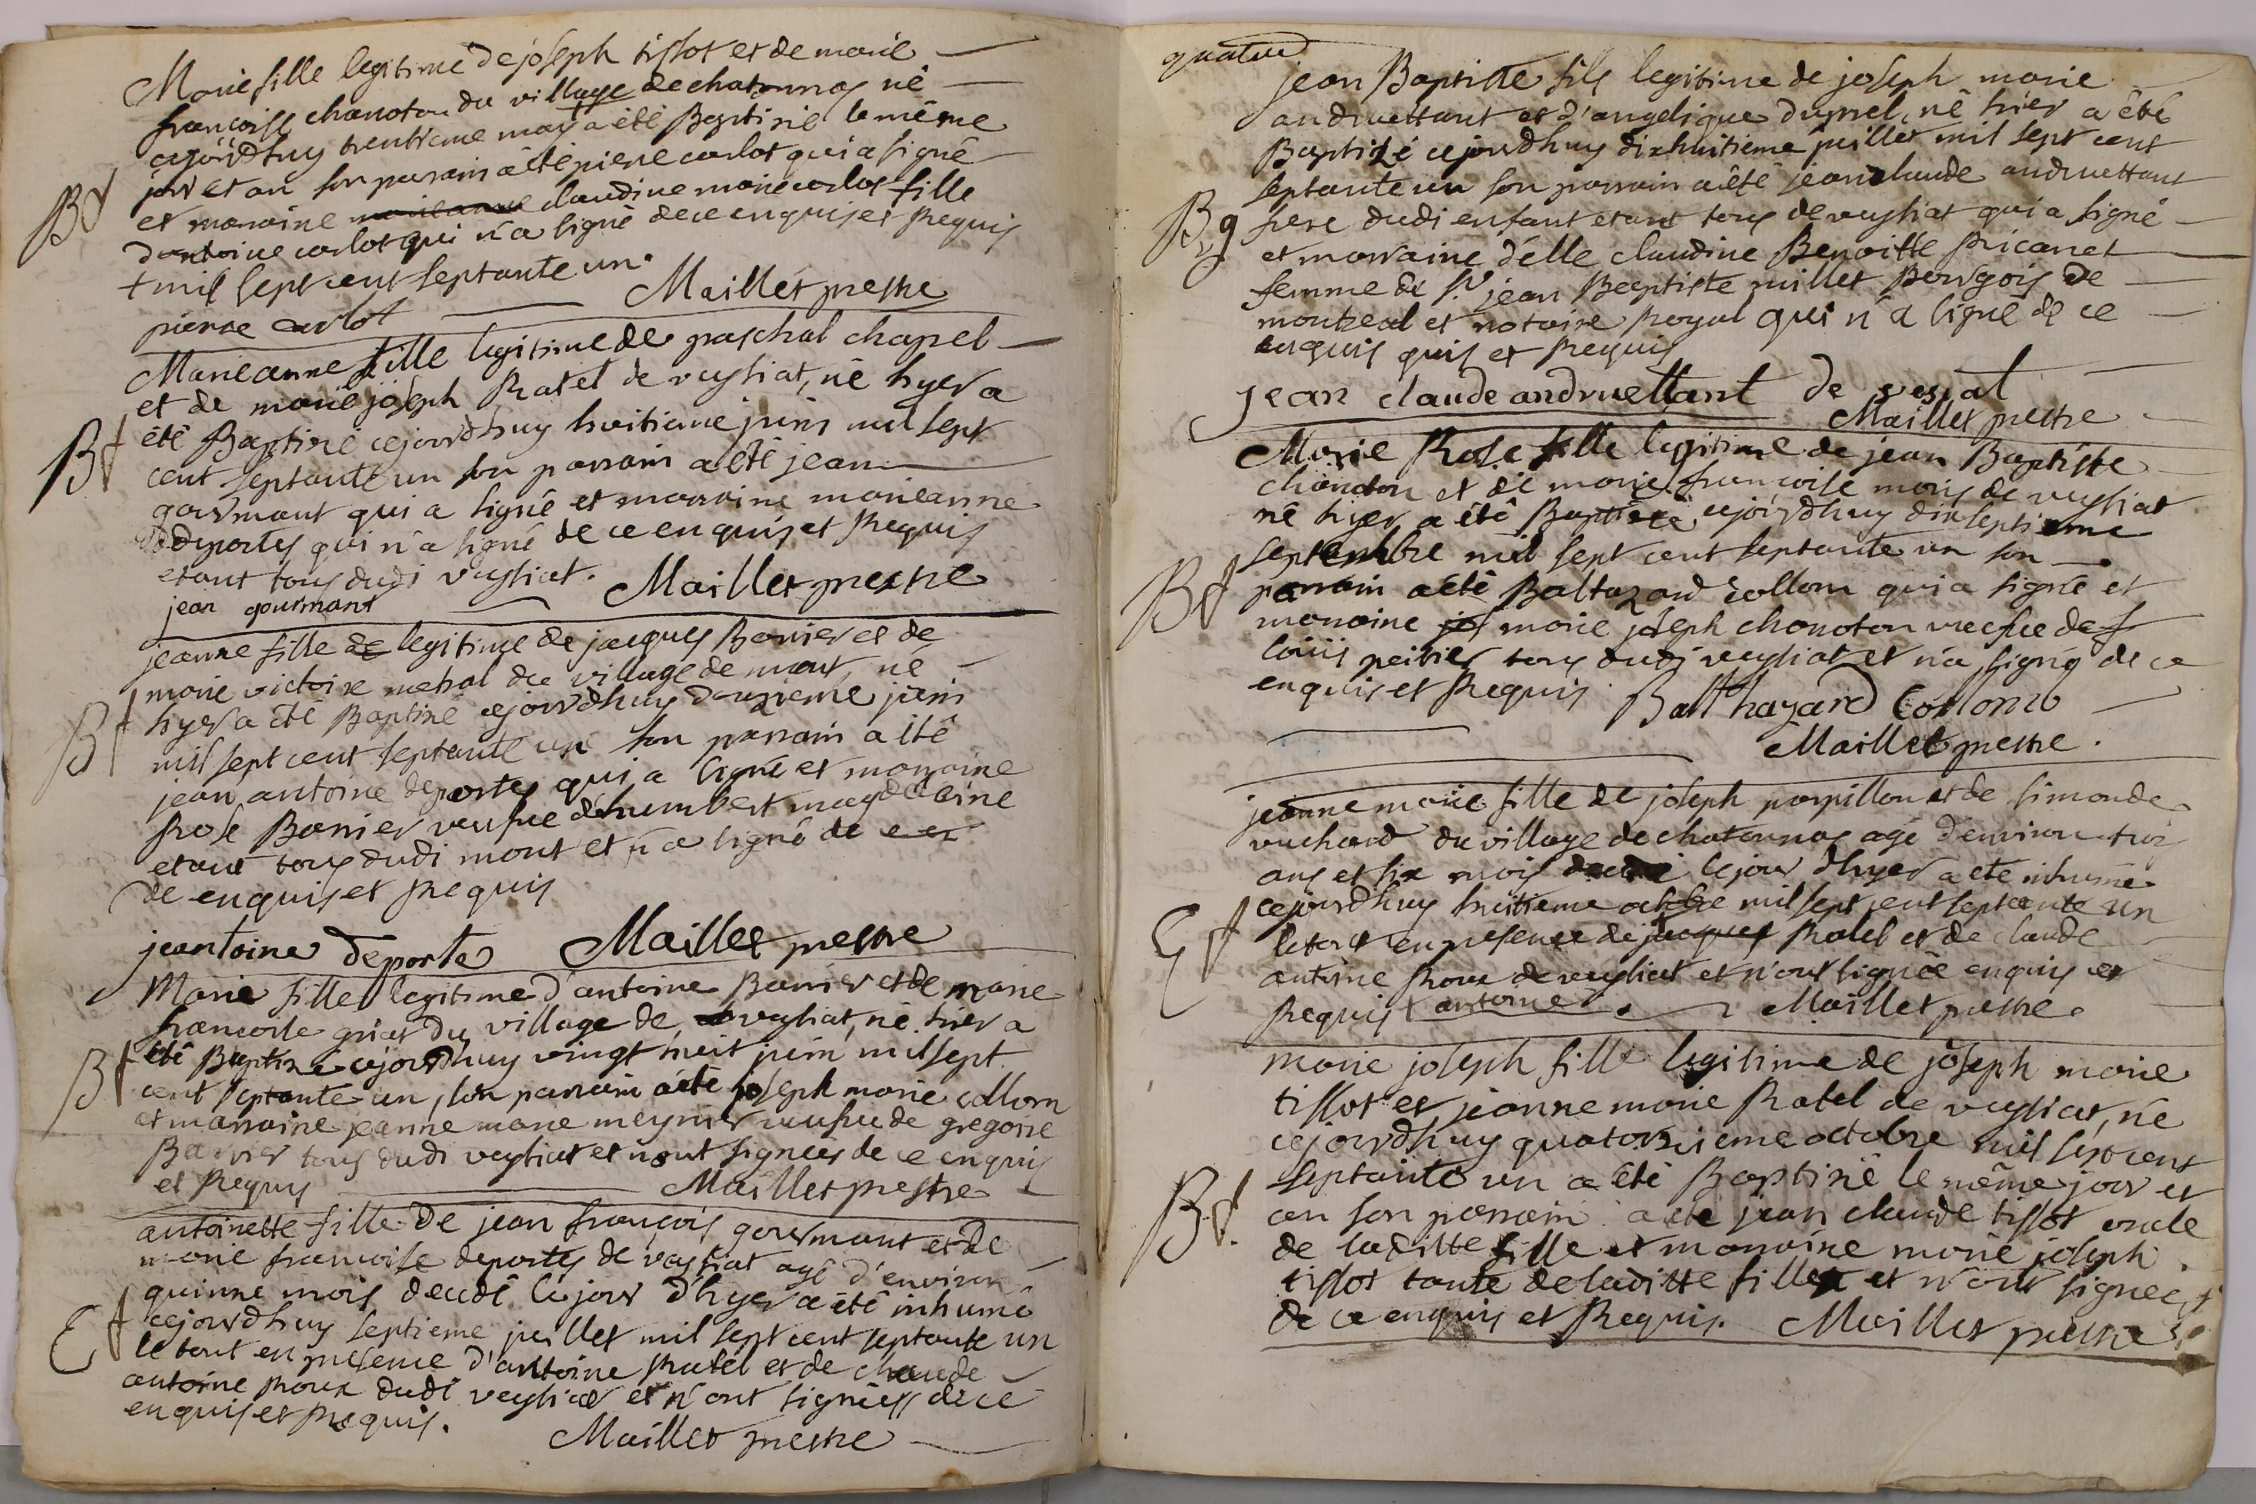 Marie fille legitime de joseph tissot et de marie
françoise chanoton du village de chatonnas né
cejourdhuy trentieme may + a eté Baptisé le même
jour et an son parrain a été pierre carlot qui a signé
Bf et maraine claudine marie carlot fille
d'antoine carlot qui n'a signé de ce enquis et Requis
+ mil sept cent septante un.
Maillet prestre
pierre carlot
Marieanne fille legitime de paschal chapel
et de marie joseph Ratel de veyssiat, né hyer a
Bf été Baptisé cejourdhuy huitieme juin mil sept
cent septante un son parrain a été jean
gourmant qui a signé et marraine marieanne
deportes qui n'a signé de ce enquis et Requis
etant tous dudi veyssiat. Maillet prestre
jean gourmant
jeanne fille de legitime de jacques Barrier et de
marie victoire du village de mont, né
Bf hyer a été Baptisé cejourdhuy douzieme juin
mil sept cent septante un son parrain a été
jean antoine deportes qui a signé et marraine
Rose Barrier veufve d'humbert magdelaine
etant tous dudi mont et n'a signé de ce
de enquis et Requis
jeantoine deporte Maillet prestre
Marie fille legitime d'antoine Barrier et de marie
francoise du village de veyssiat, né hier a
Bf été Baptisé cejourdhuy vingt huit juin mil sept
cent septante un, son parrain a été joseph marie collom
et marraine jeanne marie meynier veufve de gregoire
Barrier tous dudi veyssiat et n'ont signées de ce enquis
et Requis Maillet prestre
antoinette fille de jean françois gourmant et de
marie francoise deportes de veyssiat agé d'environ
quinne mois decedé le jour d'hyer a été inhumé
Ef cejourdhuy septieme juillet mil sept cent septante un
le tout en presence d'antoine Ratel et de claude
antoine Roux dudi veyssiat et n'ont signées de ce
enquis et Requis.
Maillet prestre
quatre
jean Baptiste fils legitime de joseph marie
andruettant et d'angelique duprel, né hier a été
Baptisé cejourdhuy dixhuitieme juillet mil sept cent
septante un son parrain a été jean claude andruettant
Bg frere dudi enfant etant tous de veyssiat qui a signé
et marraine d'elle claudine Benoitte picanet
femme de Sr. jean Baptiste millet Bourgois de
montreal et notaire Royal qui n'a signé de ce
enquis quis et Requis
jean claude andruettant de vesiat
Maillet prestre
Marie Rose fille legitime de jean Baptiste
chanoton et de marie françoise de veyssiat
né hyer a été Baptisée cejourdhuy dixseptieme
septembre mil sept cent septante un son
Bf parrain a été Baltazard collom qui a signé et
maraine jos marie joseph chonoton veufve de
loüis peitier tous dudi veyssiat et n'a signé de ce
enquis et Requis. Balthazard Collomb
Maillet prestre.
jeanne marie fille de joseph parpillon et de simonde
vuchard du village de chatonnas agé d'environ trois
ans et six mois decedé le jour d'hyer a eté inhumé
cejourdhuy huitieme octobre mil sept cent septante un
Ef le tout en presence de jacques Ratel et de claude
antoine Roux de veyssiat et n'ont signée enquis et
Requis antoine. Maillet prestre.
marie joseph fille legitime de joseph marie
tissot et jeanne marie Ratel de veyssiat, né
cejourdhuy quatorzieme octobre mil sept cent
Bf. septante un a été Baptisé le même jour et
an son parrain a eté jean claude tissot oncle
de laditte fille et maraine marie joseph
tissot tante de laditte fille et n'ont signée
de ce enquis et Requis. Maillet prestre